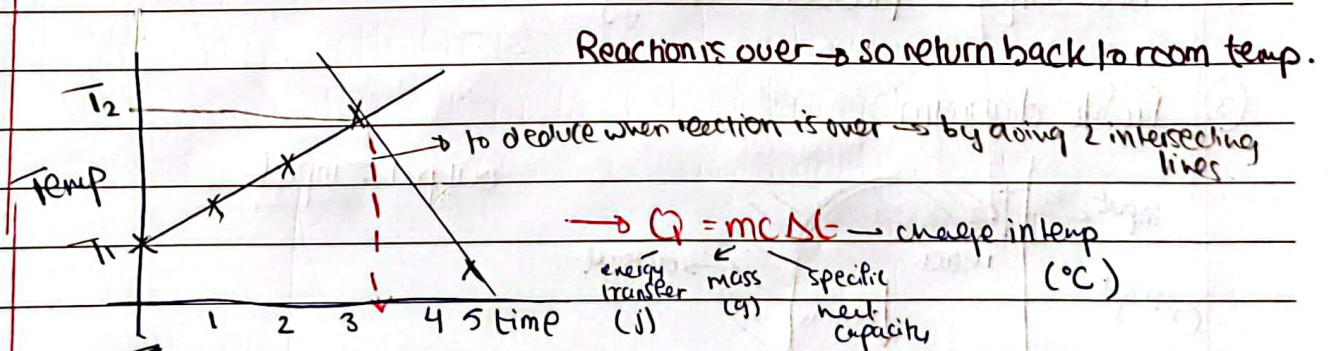 Reaction is over → so return back to room temp.
T2
→ to deduce when reection is over → by doing 2 intersecting
lines
Temp
→ Q = mcΔt → change in temp
(°C)
T1
energy
transfer
(j)
mass
(g)
specific
heat
capacity
1 2 3 4 5 time